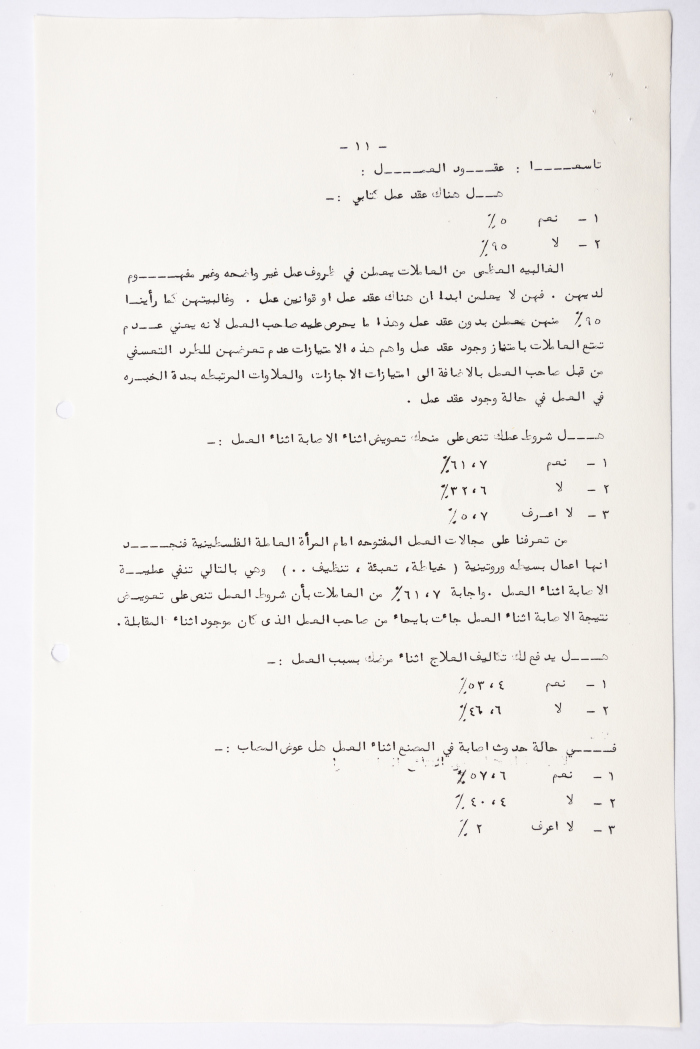 - ١١ -
تاسعـــــا : عقـــود العمـــــل :
هـــل هناك عقد عمل كتابي :-
١ - نعم ٥٪
٢ - لا ٩٥٪
الغالبيه العظمى من العاملات يعملن في ظروف عمل غير واضحه وغير مفهـــــوم
لديهن . فهن لا يعلمن ابدا ان هناك عقد عمل او قوانين عمل . وغالبيتهن كما رأينـا
٩٥٪ منهن يعملن بدون عقد عمل وهذا ما يحرص عليه صاحب العمل لانه يعني عـــدم
تمتع العاملات بامتياز وجود عقد عمل واهم هذه الامتيازات عدم تعرضهن للطرد التعسفي
من قبل صاحب العمل بالاضافة الى امتيازات الاجازات، والعلاوات المرتبطه بمدة الخبـره
في العمل في حالة وجود عقد عمل .
هـــل شروط عملك تنص على منحك تعويض اثناء الاصابة اثناء العمل :-
١ - نعم ٦١،٧٪
٢ - لا ٣٢،٦٪
٣ - لا اعـرف ٥،٧٪
من تعرفنا على مجالات العمل المفتوحه امام المرأة العاملة الفلسطينية فنجـــــد
انها اعمال بسيطه وروتينية ( خياطة، تعبئة ، تنظيف ٠٠ ) وهي بالتالي تنفي عمليـــة
الاصابة اثناء العمل .واجابة ٦١،٧٪ من العاملات بأن شروط العمل تنص على تعويـض
نتيجة الاصابة اثناء العمل جاءت بايحاء من صاحب العمل الذى كان موجود اثناء المقابلة.
هـــل يدفع لك تكاليف العلاج اثناء مرضك بسبب العمل :-
١ - نعم ٥٣،٤٪
٢ - لا ٤٦،٦٪
فـــي حالة حدوث اصابة في المصنع اثناء العمل هل عوض المصاب :-
١ - نعم ٥٧،٦٪
٢ - لا ٤٠،٤٪
٣ - لا اعرف ٢ ٪